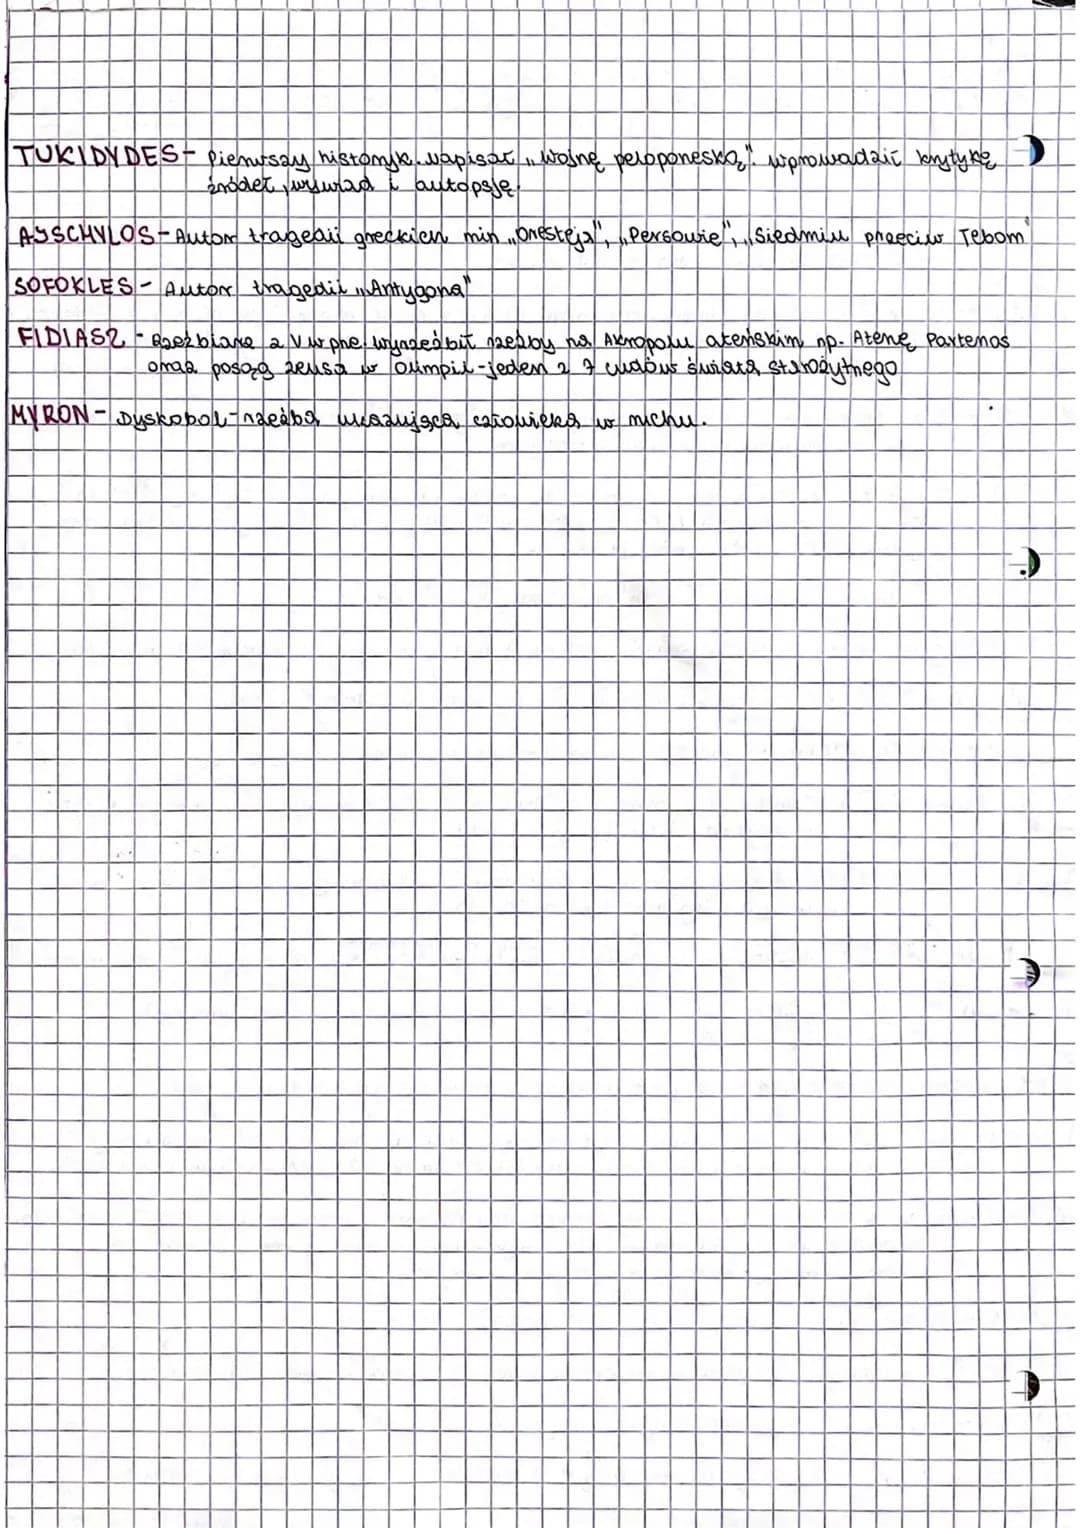 TUKIDYDES- Pierwszy historyk. Napisał „Wojnę peloponeską". Wprowadził krytykę
źródeł, wywiad i autopsję.
AJSCHYLOS- Autor tragedii greckich min „Oresteja", „Persowie", „Siedmiu przeciw Tebom"
SOFOKLES- Autor tragedii „Antygona"
FIDIASZ - Rzeźbiarz z V w pne. Wyrzeźbił rzeźby na Akropolu ateńskim np. Atenę Partenos
oraz posąg Zeusa w Olimpii-jeden z 7 cudów świata starożytnego
MYRON- Dyskobol-rzeźba ukazująca człowieka w ruchu.